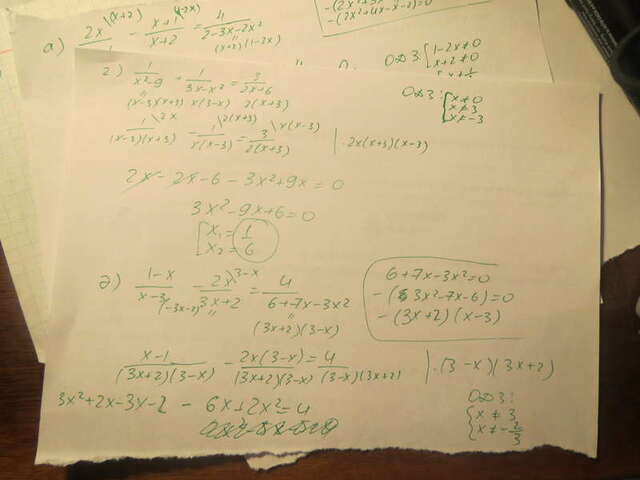 а) 2x\(x+2) - x+1\(1-2x)/x+2 = 4/2-3x-2x²
(x+2)(1-2x)
-(2x²+4x-x-2)=0
ОДЗ: { 1-2x≠0
x+2≠0
г) 1/x²-9 + 1/3x-x² = 3/2x+6
(x-3)(x+3) x(3-x) 2(x+3)
ОДЗ: { x≠0
x≠3
x≠-3
1\2x/(x-3)(x+3) - 1\2(x+3)/x(x-3) = 3\x(x-3)/2(x+3) | ·2x(x+3)(x-3)
2x - 2x - 6 - 3x² + 9x = 0
3x² - 9x + 6 = 0
[ x₁ = 1
x₂ = 6
д) 1-x/x-3 - 2x\3-x/3x+2 = 4/6+7x-3x²
(-3x-2) (3x+2)(3-x)
6+7x-3x²=0
-(3x²-7x-6)=0
-(3x+2)(x-3)
x-1/(3x+2)(3-x) - 2x(3-x)/(3x+2)(3-x) = 4/(3-x)(3x+2) | ·(3-x)(3x+2)
3x²+2x-3x-2 - 6x+2x²=4
ОДЗ:
{ x ≠ 3
x ≠ -2/3